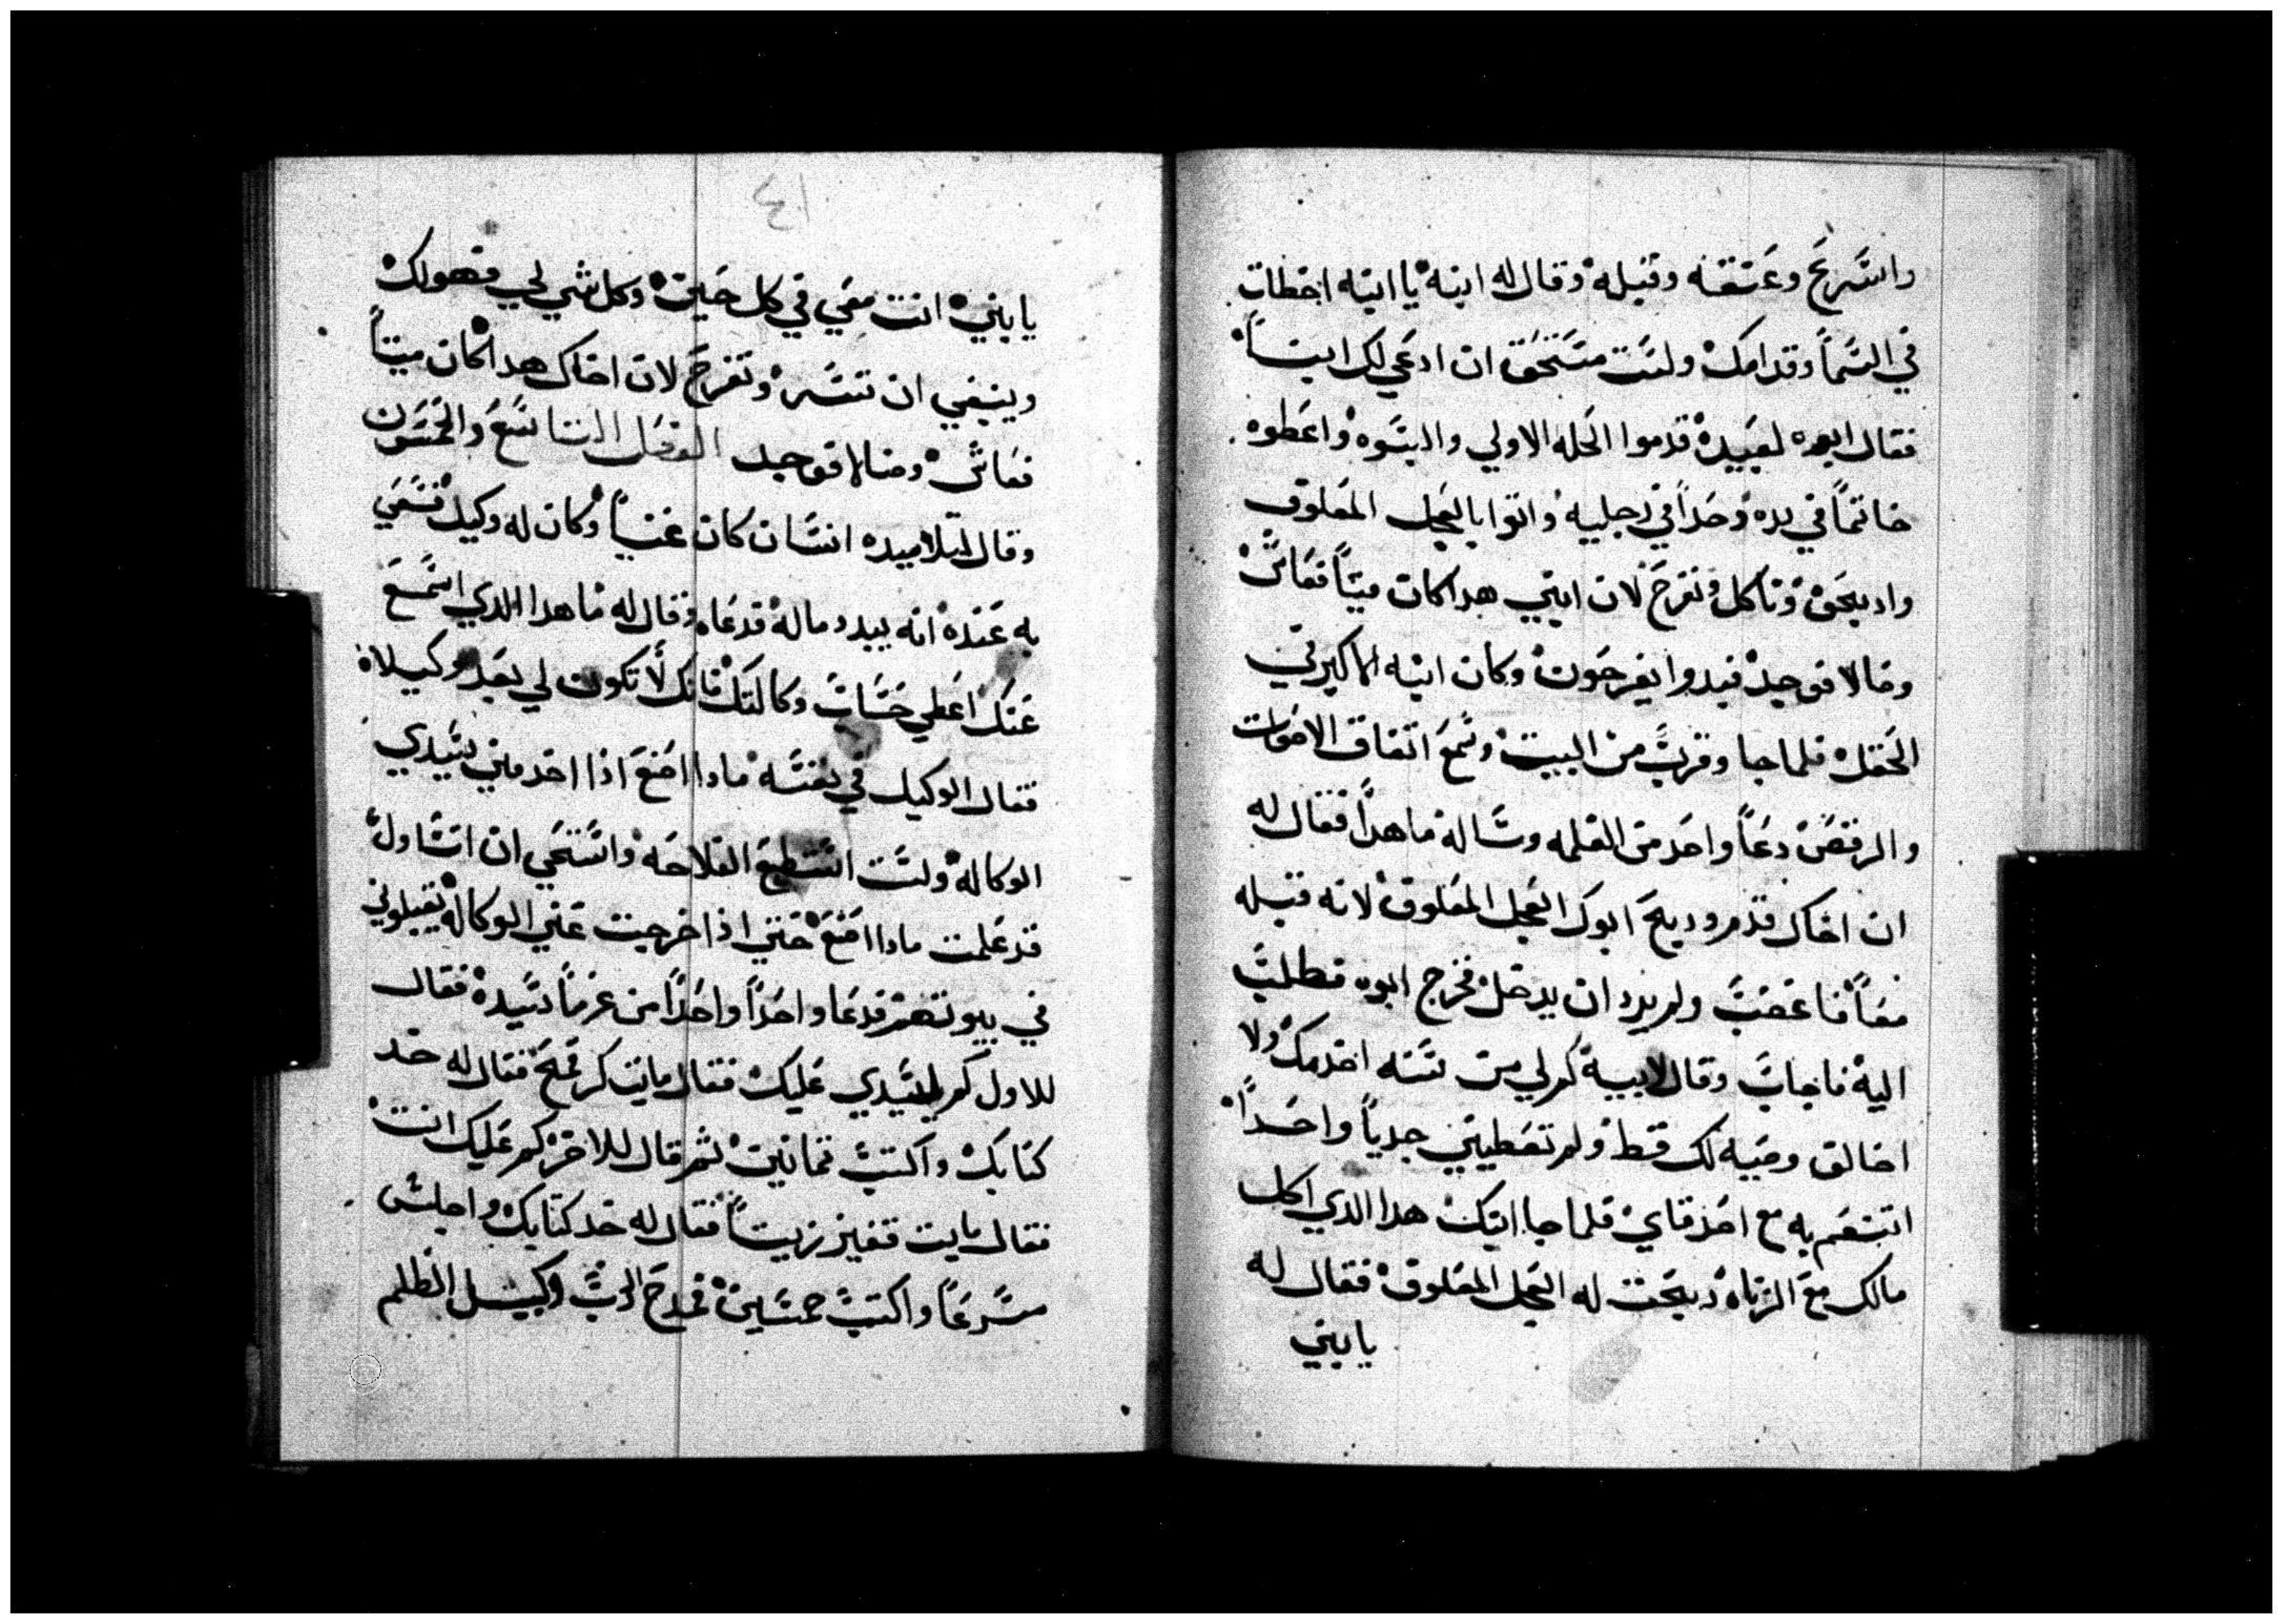 واسرع وعتنقه وقبله وقال له ابنه يا ابتاه اخطات
في السما وقدامك ولست مستحق ان ادعي لك ابناً
فقال ابوه لعبيده قدموا الحله الاولي والبسوه واعطوه
خاتماً في يده وحداً في رجليه واتوا بالعجل المعلوف
واديحق وناكل ونفرح لان ابني هدا كان ميتاً فعاش
وضالا فوجد فبدوا يفرحون وكان ابنه الاكبر في
الحقل فلما جا وقرب من البيت وسمع اتفاق الاصوات
والرقص دعاً واحد من الغلمه وساله ما هداً فقال له
ان اخاك قدم ودبح ابوك العجل المعلوف لانه قبله
معاً فاغضب ولم يرد ان يدخل فخرج ابوه فطلب
اليه فاجاب وقال لابيه كم لي من سنه اخدمك ولا
اخالف وصيه لك قط ولم تعطيني جدياً واحداً
اتنعم به مع اصدقاي فلما جا ابنك هدا الدي اكل
مالك مع الزناه دبحت له العجل المعلوف فقال له
يابني
٤١
يابني انت معي في كل حين وكل شي لي فهو لك
وينبغي ان تسر وتفرح لان اخاك هدا كان ميتاً
فعاش وضالا فوجد الفصل التاسع والخمسون
وقال لتلاميده انسان كان غنياً وكان له وكيل فسعي
به عنده انه يبدد ماله فدعاه وقال له ما هدا الدي اسمع
عنك اعطي حساب وكالتك فانك لا تكون لي بعد وكيلاه
فقال الوكيل في نفسه مادا اصنع اذا اخد مني سيدي
الوكاله ولست استطيع الفلاحه واستحي ان اتساول
قد علمت مادا اصنع حتي اذا خرجت عني الوكاله يقبلوني
في بيوتهم فدعا واحداً واحداً من غرماً سيده فقال
للاول كم لسيدي عليك فقال مايت كر قمح فقال له خد
كتابك واكتب تمانين ثم قال للاخر كم عليك انت
فقال مايت قفيز زيتاً فقال له خد كتابك واجلس
مسرعاً واكتب خمسين فمدح الرب وكيل الظلم